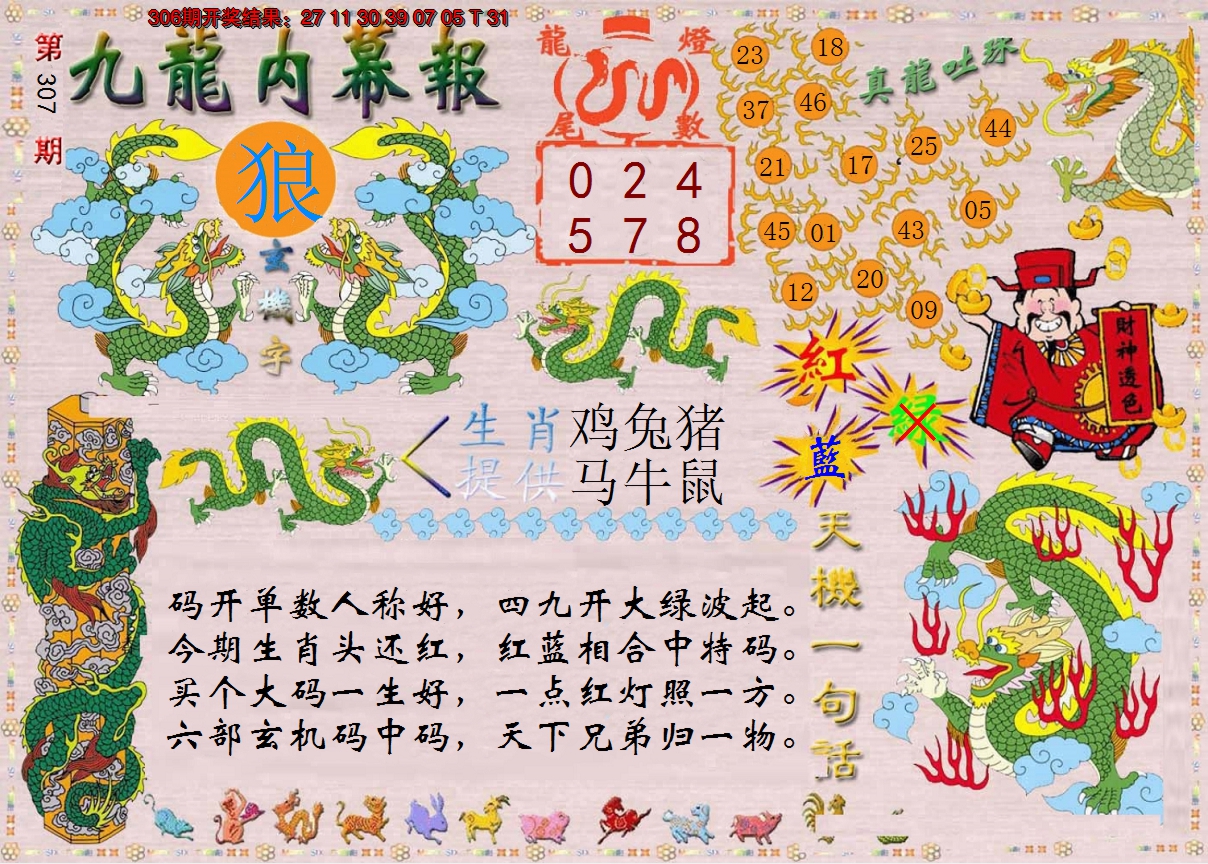 306期开奖结果：27 11 30 39 07 05 T 31
第307期
九龍内幕報
狼
玄機字
龍燈尾數
0 2 4
5 7 8
真龍吐珠
23 18
37 46
21 17 25 44
45 01 43 05
12 20 09
紅
绿
藍
財神透色
生肖 鸡兔猪
提供 马牛鼠
码开单数人称好，四九开大绿波起。
今期生肖头还红，红蓝相合中特码。
买个大码一生好，一点红灯照一方。
六部玄机码中码，天下兄弟归一物。
天機一句話